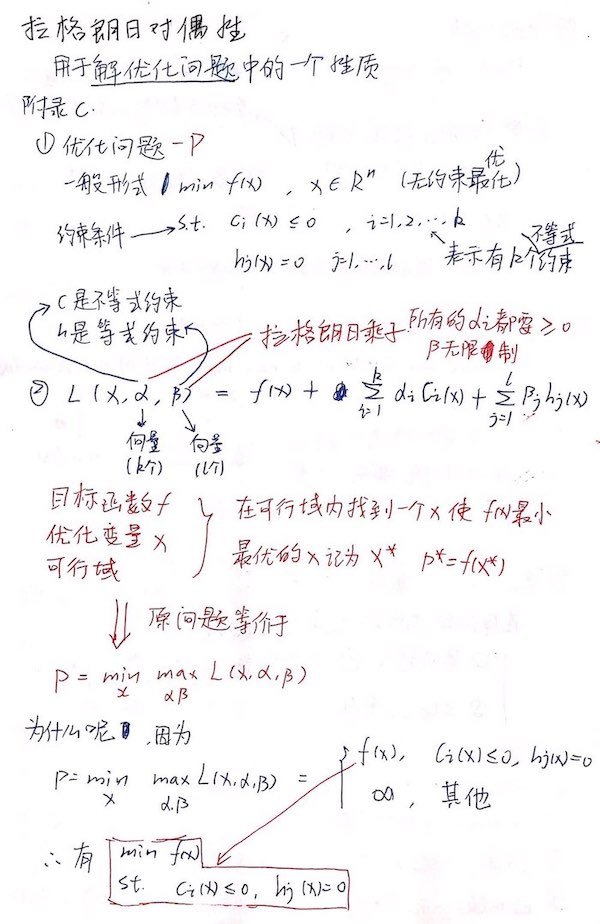 拉格朗日对偶性
用于解优化问题中的一个性质
附录C.
① 优化问题-P
一般形式 min f(x) , x∈Rⁿ (无约束最优化)
约束条件 → s.t. Ci(x)≤0 , i=1,2,…,k
hj(x)=0 j=1,…,l
表示有k个不等式约束
C是不等式约束
h是等式约束
拉格朗日乘子
所有的αi都要≥0
β无限制
② L(x,α,β) = f(x) + ∑_{i=1}^{k} αi Ci(x) + ∑_{j=1}^{l} βj hj(x)
向量 向量
(k个) (l个)
目标函数f
优化变量x
可行域
在可行域内找到一个x使f(x)最小
最优的x记为x* p*=f(x*)
⇓ 原问题等价于
P = min_x max_{αβ} L(x,α,β)
为什么呢,因为
P = min_x max_{α,β} L(x,α,β) = { f(x), Ci(x)≤0, hj(x)=0
∞, 其他
∴有 min f(x)
st. Ci(x)≤0, hj(x)=0